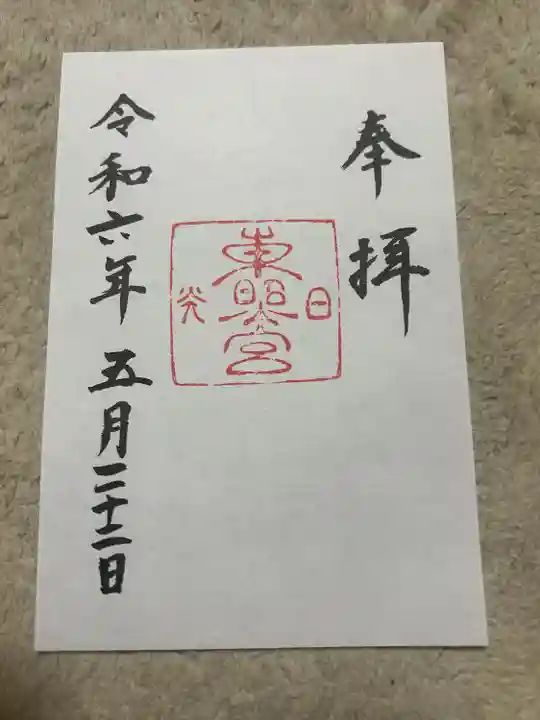 奉拝
日光
東照宮
令和六年 五月二十二日